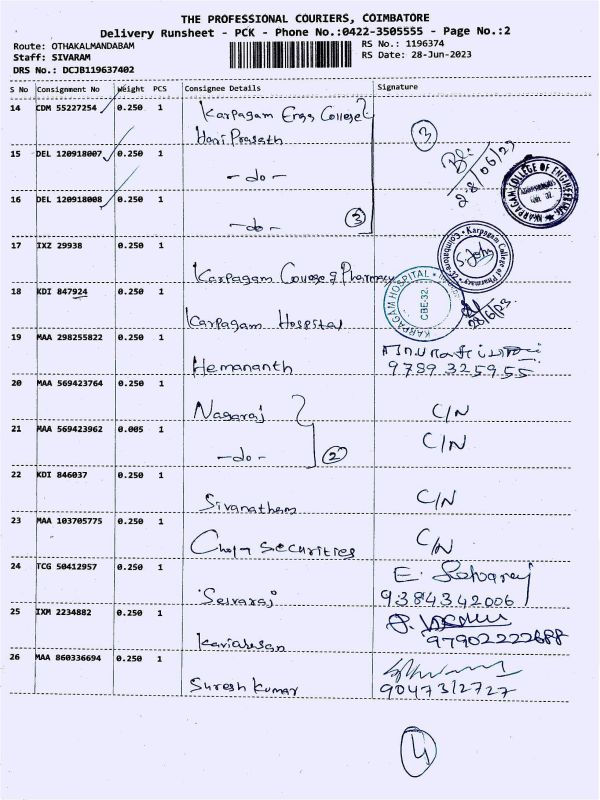 THE PROFESSIONAL COURIERS, COIMBATORE
Delivery Runsheet - PCK - Phone No.:0422-3505555 - Page No.:2
Route: OTHAKALMANDABAM
RS No.: 1196374
Staff: SIVARAM
RS Date: 28-Jun-2023
DRS No.: DCJB119637402
S No Consignment No Weight PCS Consignee Details Signature
14 CDM 55227254 0.250 1 Karpagam Engg College
Hari Prasath
15 DEL 120918007 0.250 1
-do-
3
28/06/23
16 DEL 120918008 0.250 1
-do-
3
KARPAGAM COLLEGE OF ENGINEERING
17 IXZ 29938 0.250 1
Karpagam College of Pharmacy
Karpagam College of Pharmacy Coimbatore-32
S. John
18 KDI 847924 0.250 1
Karpagam Hospital
KARPAGAM HOSPITAL
CBE-32.
28/6/23
19 MAA 298255822 0.250 1
Hemananth
9789325955
20 MAA 569423764 0.250 1
Nagaraj C/N
21 MAA 569423962 0.005 1
-do- 2 C/N
22 KDI 846037 0.250 1
Sivanatham C/N
23 MAA 103705775 0.250 1
Securities C/N
24 TCG 50412957 0.250 1
Selvaraj
E. Selvaraj
9384342006
25 IXM 2234882 0.250 1
97902222688
26 MAA 860336694 0.250 1
Suresh Kumar
9047312727
4